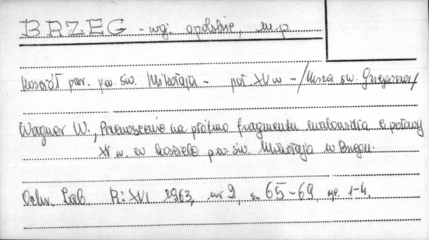 BRZEG - woj. opolskie, m.p
Kościół par. pw św. Mikołaja - poł. XV w - /Msza św. Grzegorza/
Wagner W., Przenoszenie na płótno fragmentu malowidła z połowy
XV w. w kościele p.w. św. Mikołaja w Brzegu.
Ochr. Zab. R: XVI 1963, nr 2, s. 65-69, il. 1-4.